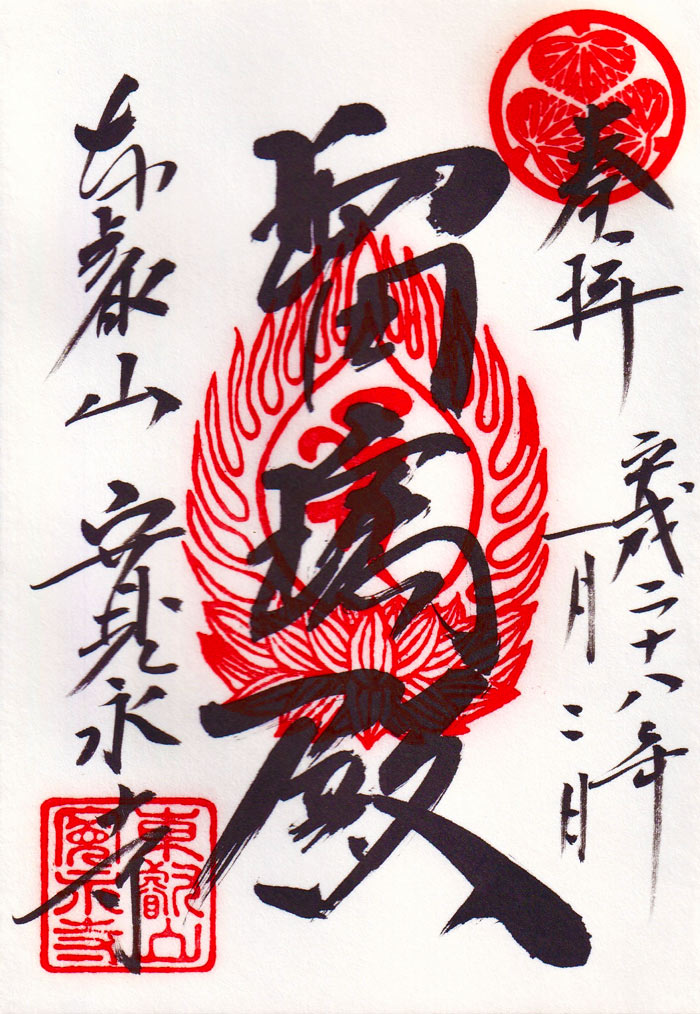 奉拝
平成二十八年
一月二日
瑠璃殿
東叡山
寛永寺
東叡山
寛永寺